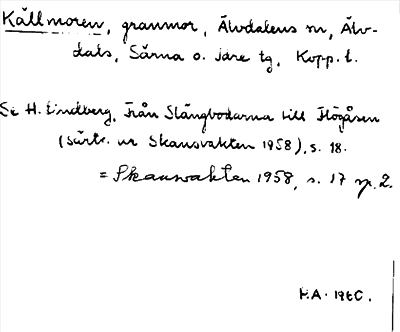 Källmoren, granmor, Älvdalens sn, Älv-
dals, Särna o. Idre tg, Kopp. l.
Se H. Lindberg, Från Slängbodarna till Högåsen
(särtr. ur Skansvakten 1958), s. 18.
= Skansvakten 1958, s. 17 sp. 2.
H.A. 1960.